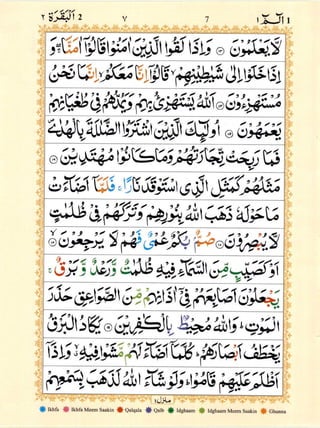 البقرة ٢ 2 ٧ 7 1 الٓمّٓ ١
لَا يَعْلَمُوْنَ ۝ وَاِذَا لَقُوا الَّذِيْنَ اٰمَنُوْا قَالُوْٓا اٰمَنَّا ۚۖ وَ
اِذَا خَلَوْا اِلٰى شَيٰطِيْنِهِمْ ۙ قَالُوْٓا اِنَّا مَعَكُمْ ۙ اِنَّمَا نَحْنُ
مُسْتَهْزِءُوْنَ ۝ اَللّٰهُ يَسْتَهْزِئُ بِهِمْ وَيَمُدُّهُمْ فِيْ طُغْيَانِهِمْ
يَعْمَهُوْنَ ۝ اُولٰٓئِكَ الَّذِيْنَ اشْتَرَوُا الضَّلٰلَةَ بِالْهُدٰى ۪
فَمَا رَبِحَتْ تِّجَارَتُهُمْ وَمَا كَانُوْا مُهْتَدِيْنَ ۝
مَثَلُهُمْ كَمَثَلِ الَّذِي اسْتَوْقَدَ نَارًا ۚ فَلَمَّآ اَضَآءَتْ
مَا حَوْلَهٗ ذَهَبَ اللّٰهُ بِنُوْرِهِمْ وَتَرَكَهُمْ فِيْ ظُلُمٰتٍ
لَّا يُبْصِرُوْنَ ۝ صُمٌّۢ بُكْمٌ عُمْيٌ فَهُمْ لَا يَرْجِعُوْنَ ۝
اَوْ كَصَيِّبٍ مِّنَ السَّمَآءِ فِيْهِ ظُلُمٰتٌ وَّرَعْدٌ وَّبَرْقٌ ۚ
يَجْعَلُوْنَ اَصَابِعَهُمْ فِيْٓ اٰذَانِهِمْ مِّنَ الصَّوَاعِقِ حَذَرَ
الْمَوْتِ ۭ وَاللّٰهُ مُحِيْطٌۢ بِالْكٰفِرِيْنَ ۝ يَكَادُ الْبَرْقُ
يَخْطَفُ اَبْصَارَهُمْ ۭ كُلَّمَآ اَضَآءَ لَهُمْ مَّشَوْا فِيْهِ ۙ وَاِذَآ
اَظْلَمَ عَلَيْهِمْ قَامُوْا ۭ وَلَوْ شَآءَ اللّٰهُ لَذَهَبَ بِسَمْعِهِمْ
منزل ١
Ikhfa Ikhfa Meem Saakin Qalqala Qalb Idghaam Idghaam Meem Saakin Ghunna